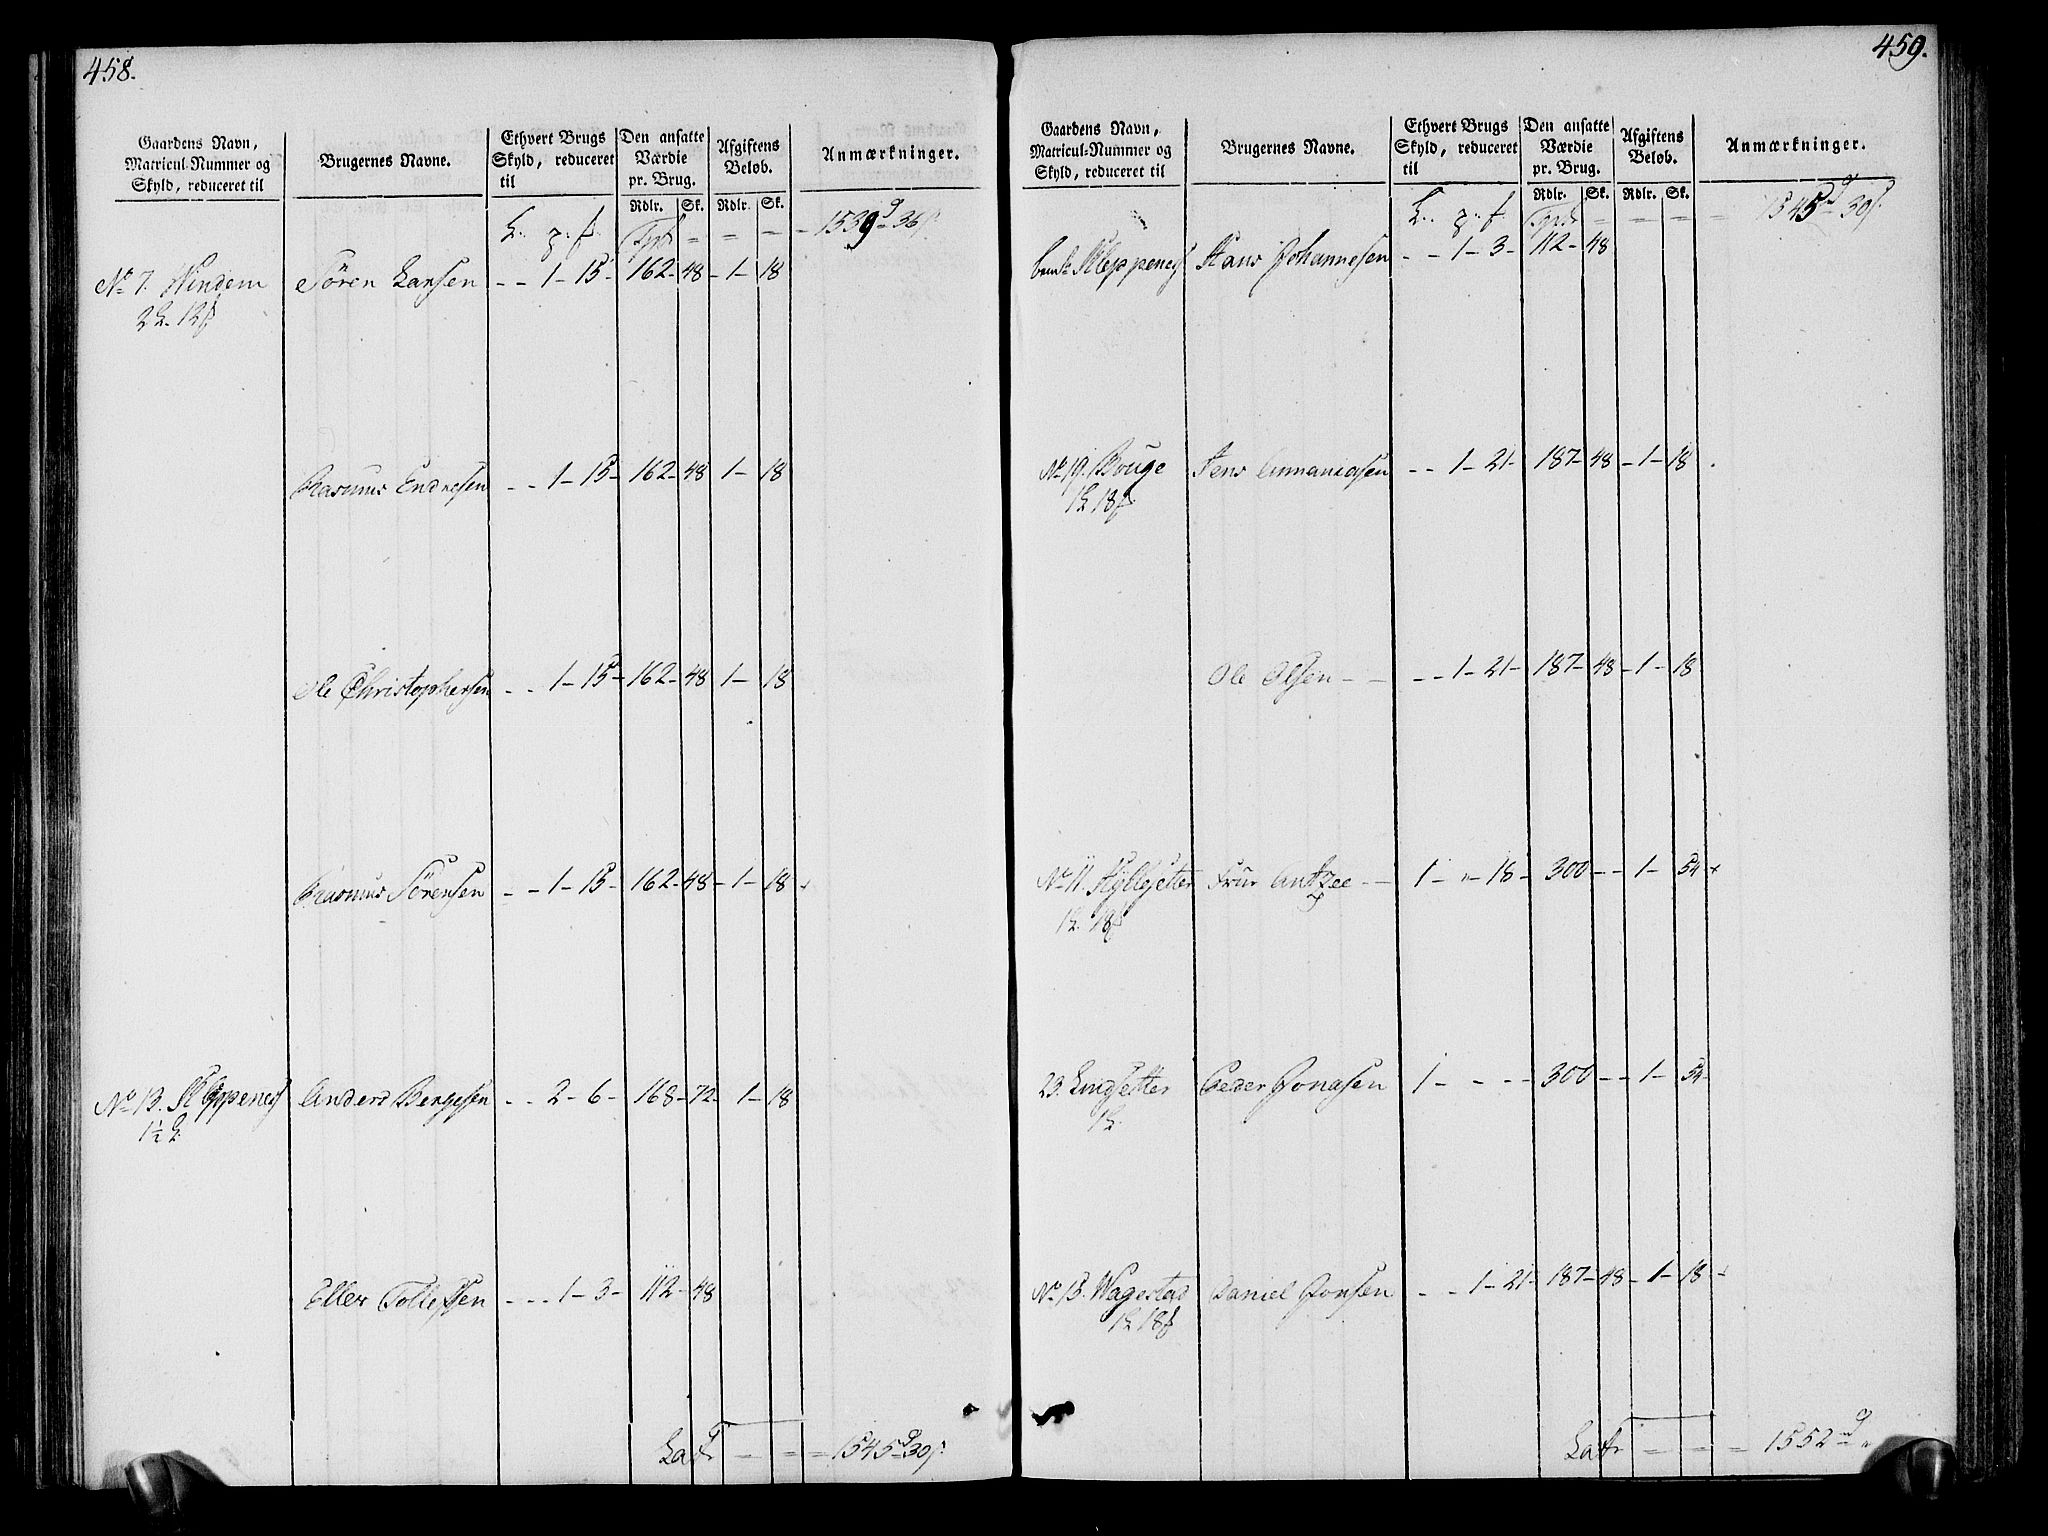 458.
Gaardens Navn, Matricul-Nummer og Skyld, reduceret til
Brugernes Navne.
Ethvert Brugs Skyld, reduceret til
Den ansatte Værdie pr. Brug.
Afgiftens Beløb.
Anmærkninger.
Rdlr. Sk. Rdlr. Sk.
1539 d 36 s.
No 7. Vindem Sören Larsen - - 1 - 15 - 162 - 48 - 1 - 18
Rasmus Endresen - - 1 - 15 - 162 - 48 - 1 - 18
Ole Christophersen - - 1 - 15 - 162 - 48 - 1 - 18
Rasmus Sörensen - - 1 - 15 - 162 - 48 - 1 - 18
No 13. Kleppenes Anders - - 2 - 6 - 168 - 72 - 1 - 18
1½
Eller - - - 1 - 3 - 112 - 48
Lat 1545 d 30 s.
459.
Gaardens Navn, Matricul-Nummer og Skyld, reduceret til
Brugernes Navne.
Ethvert Brugs Skyld, reduceret til
Den ansatte Værdie pr. Brug.
Afgiftens Beløb.
Anmærkninger.
Rdlr. Sk. Rdlr. Sk.
1545 d 30 s.
Kleppenes Hans Johannesen - - 1 - 3 - 112 - 48
No 19. Jens Annaniasen - - 1 - 21 - 187 - 48 - 1 - 18
Ole Olsen - - - - 1 - 21 - 187 - 48 - 1 - 18
No 11. Frue 1 - " - 18 - 300 - - 1 - 54
23. Peder Jonasen 1 - - - - 300 - - 1 - 54
No 15. Wagestad Daniel Jonsen - - 1 - 21 - 187 - 48 - 1 - 18
Lat 1552 d "